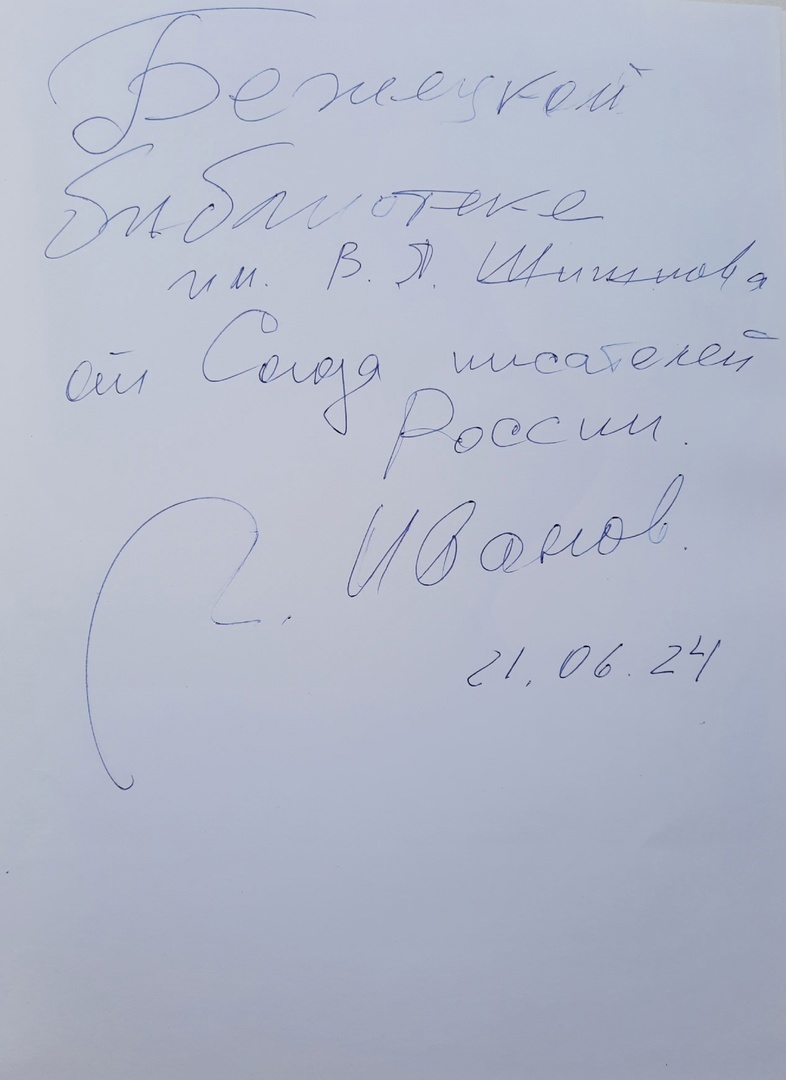 Бежецкой
библиотеке
им. В. Я. Шишкова
от Союза писателей
России.
Г. Иванов.
21.06.24